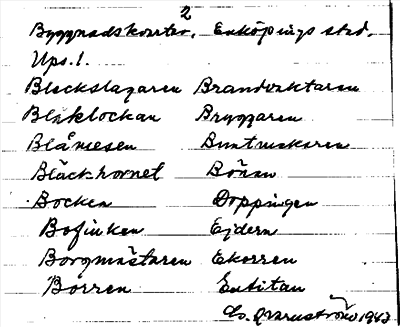 2
Byggnadskvarter, Enköpings stad,
Ups. l.
Bleckslagaren Brandvaktaren
Blåklockan Bryggaren
Blåmesen Buntmakaren
Bläckhornet Bönan
Bocken Doppingen
Bofinken Ejdern
Borgmästaren Ekorren
Borren Entitan
Co. Qvarnström 1963